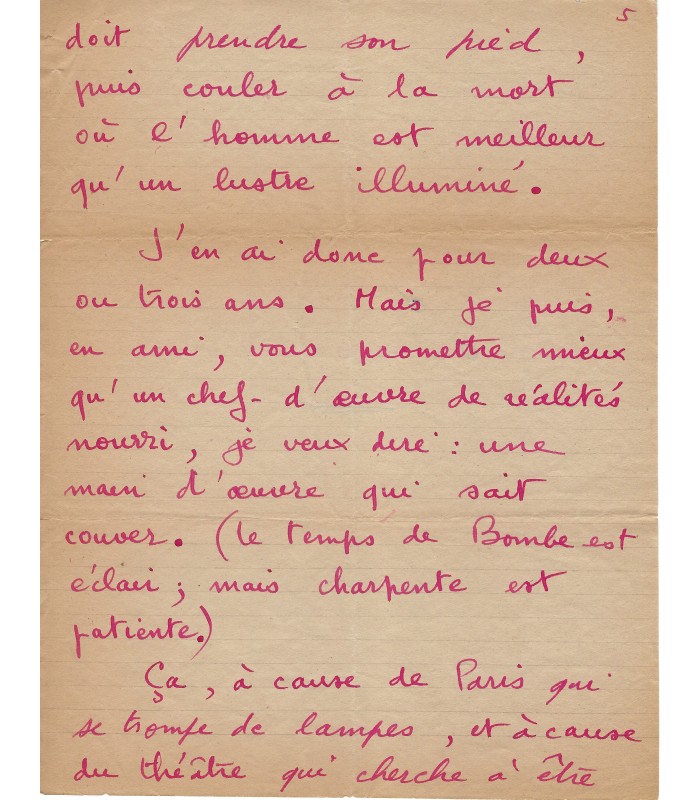 5
doit prendre son pied,
puis couler à la mort
où l'homme est meilleur
qu'un lustre illuminé.
J'en ai donc pour deux
ou trois ans. Mais je puis,
en ami, vous promettre mieux
qu'un chef-d'œuvre de réalités
nourri, je veux dire : une
main d'œuvre qui sait
couver. (le temps de Bombe est
éclair ; mais charpente est
patiente.)
Ça, à cause de Paris qui
se trompe de lampes, et à cause
du théâtre qui cherche à être